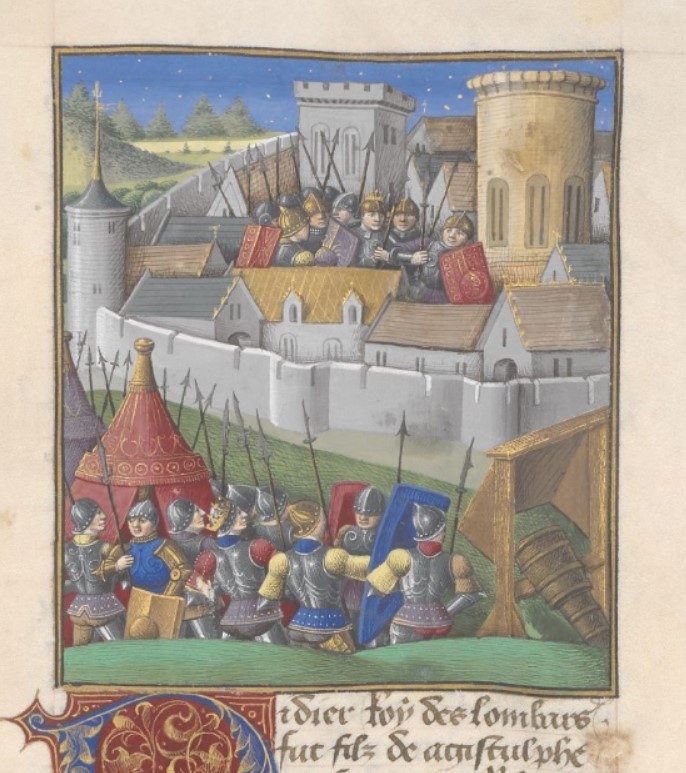 Didier Roy des lombars
fut filz de acistulphe